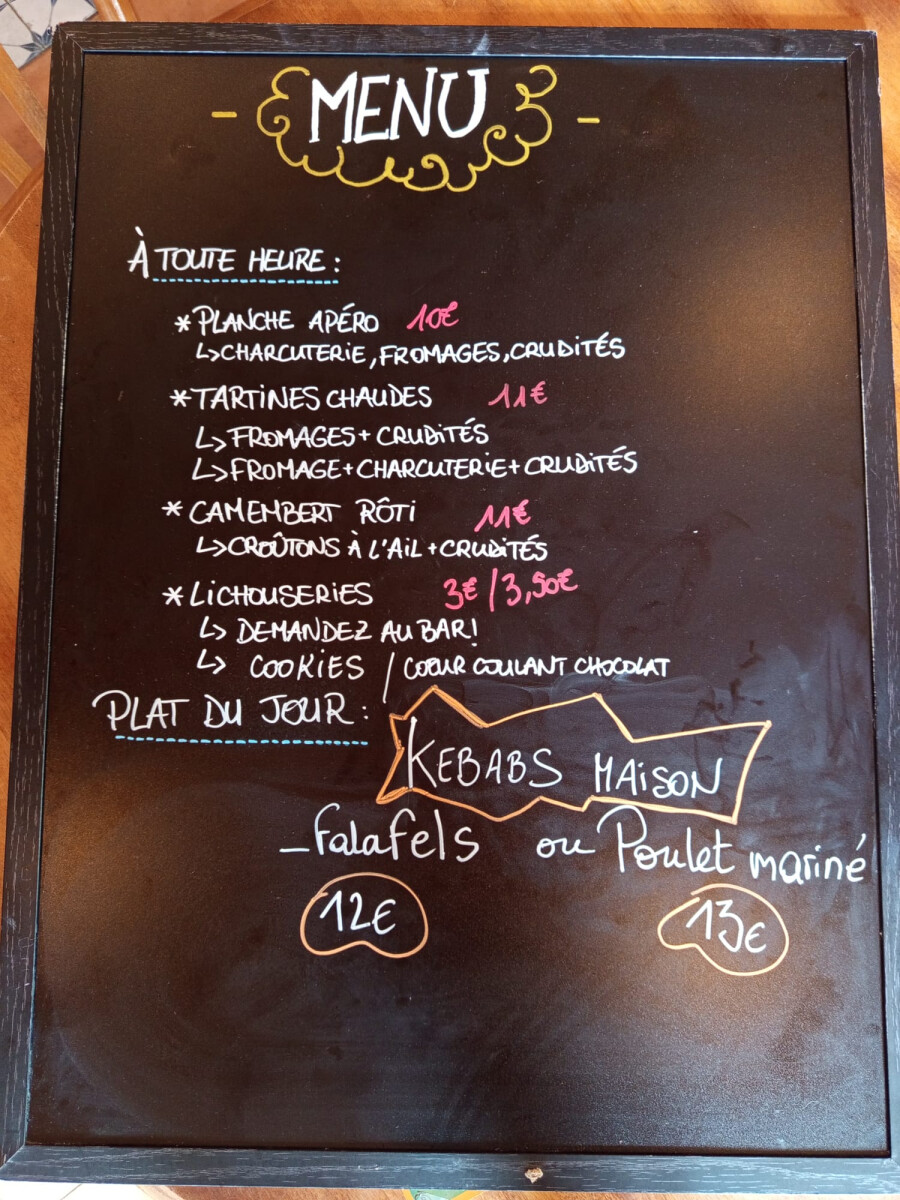 - MENU -
À TOUTE HEURE :
* PLANCHE APÉRO 10€
↳ CHARCUTERIE, FROMAGES, CRUDITÉS
* TARTINES CHAUDES 11€
↳ FROMAGES + CRUDITÉS
↳ FROMAGE + CHARCUTERIE + CRUDITÉS
* CAMEMBERT RÔTI 11€
↳ CROÛTONS À L'AIL + CRUDITÉS
* LICHOUSERIES 3€ / 3,50€
↳ DEMANDEZ AU BAR !
↳ COOKIES / COEUR COULANT CHOCOLAT
PLAT DU JOUR :
KEBABS MAISON
- falafels ou Poulet mariné
12€ 13€